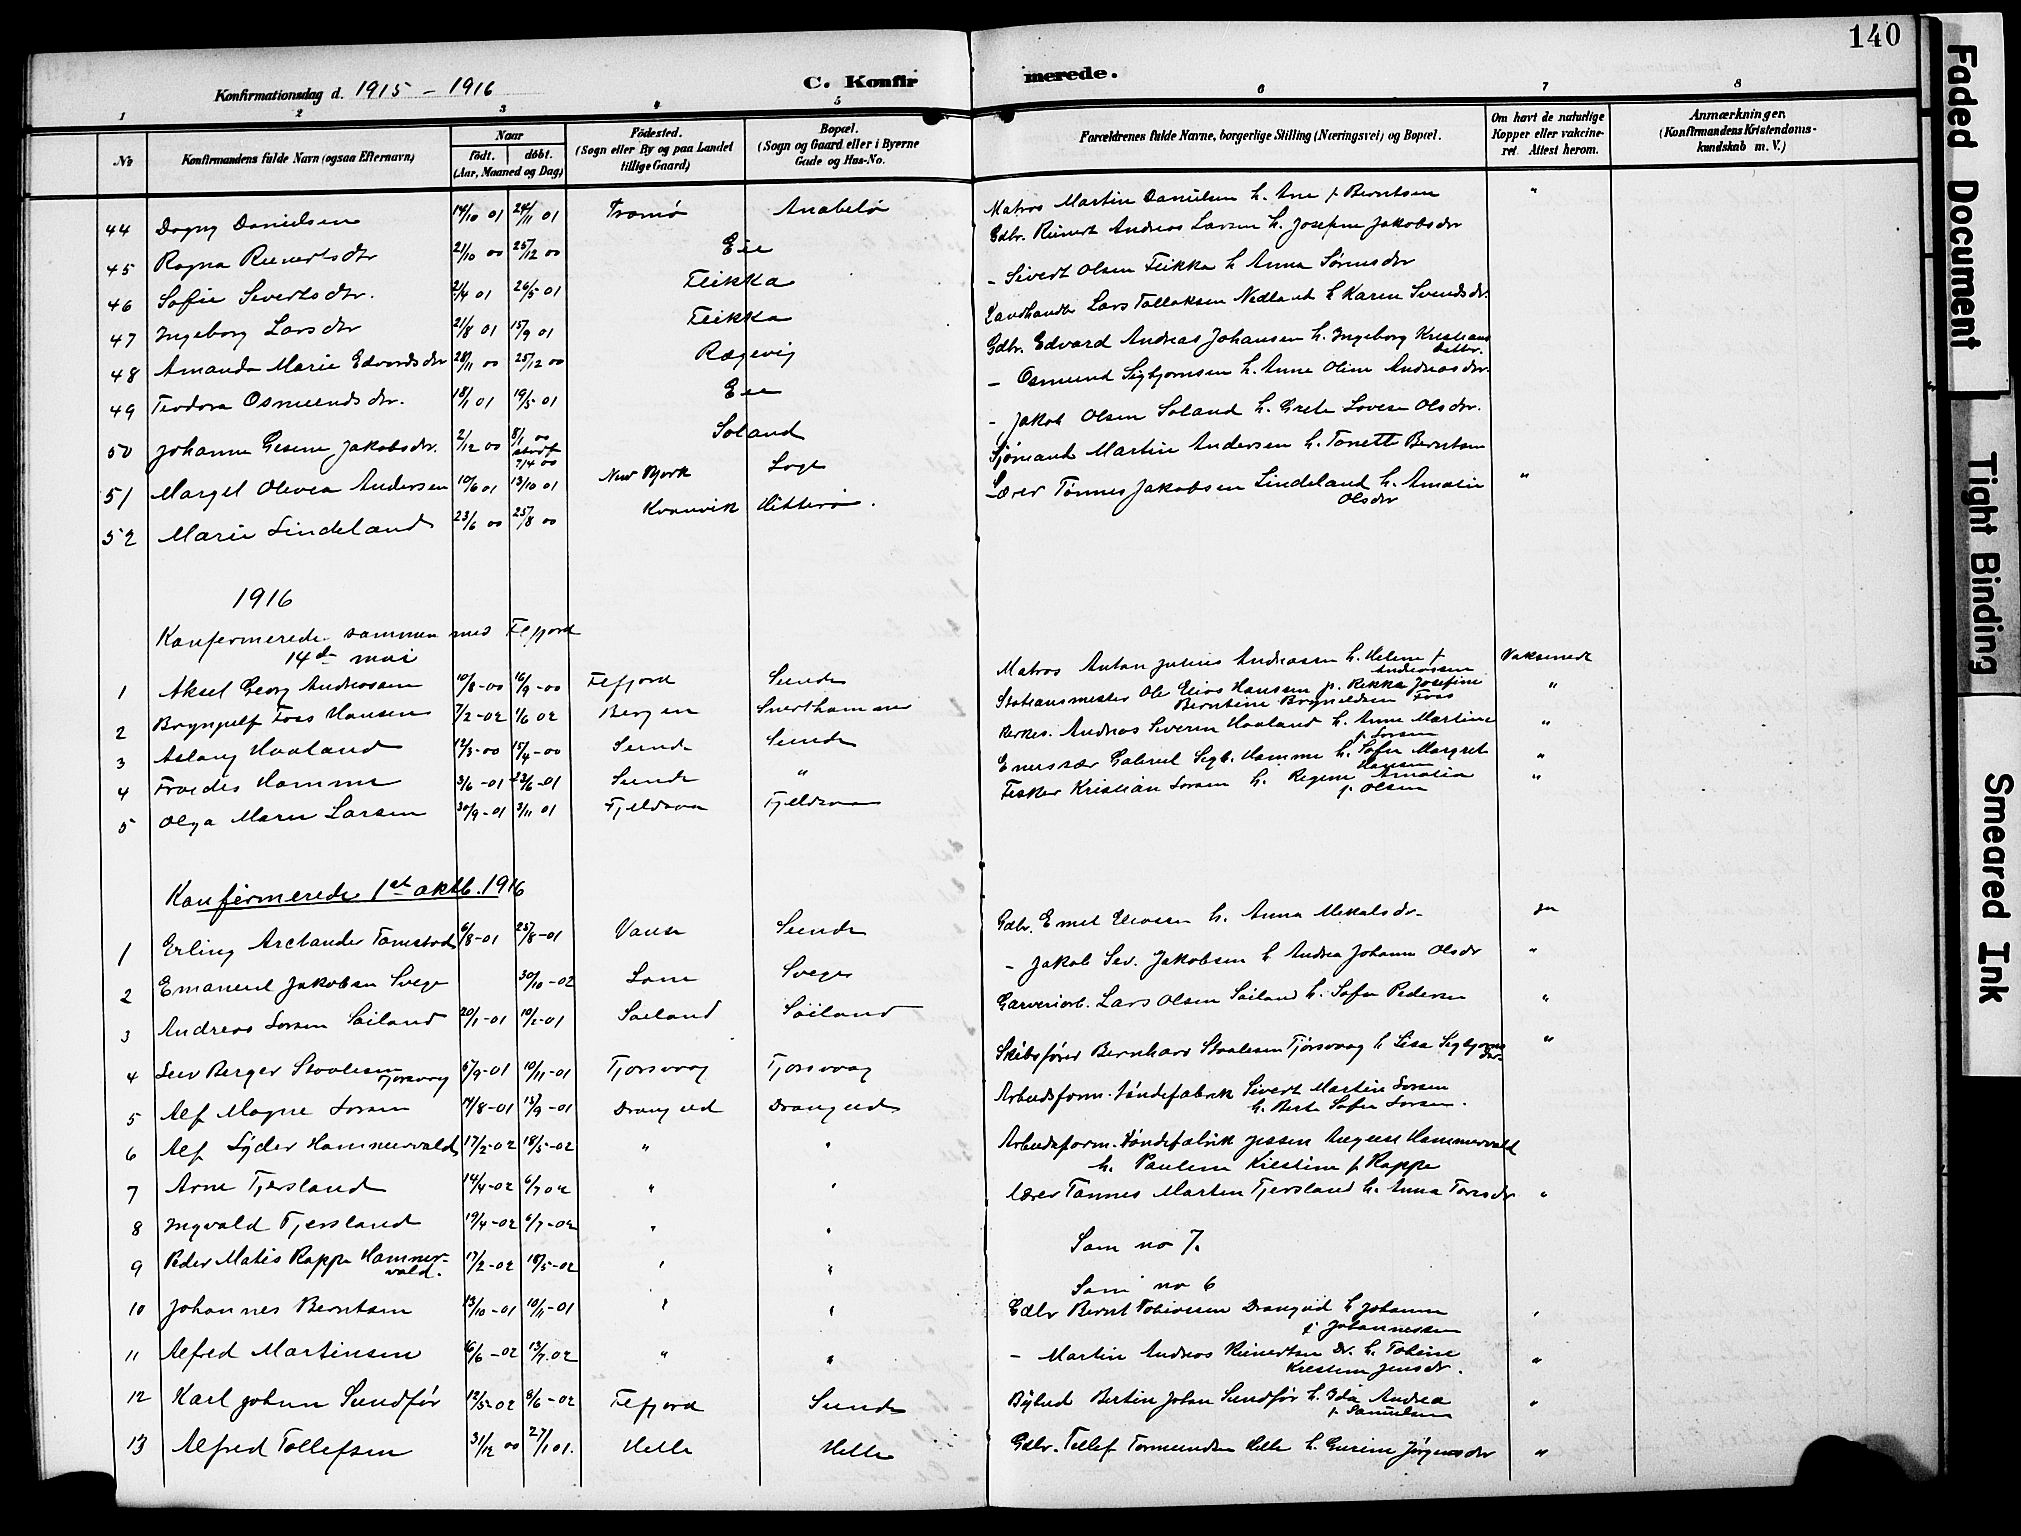 140
Konfirmationsdag d. 1915 – 1916
C. Konfirmerede.
1 2 3 4 5 6 7 8
No
Konfirmandens fulde Navn (ogsaa Efternavn)
Naar
födt. döbt.
(Aar, Maaned og Dag)
Födested.
(Sogn eller By og paa Landet
tillige Gaard)
Bopæl.
(Sogn og Gaard eller i Byerne
Gade og Hus-No.
Forældrenes fulde Navne, borgerlige Stilling (Næringsvei) og Bopæl.
Om havt de naturlige
Kopper eller vakcine-
ret. Attest herom.
Anmærkninger.
(Konfirmandens Kristendoms-
kundskab m. V.)
44 Dagny Danielsen 14/10 01 24/11 01 Tromø Anabelø Matros Martin Danielsen h. Ane f. Berntsen "
45 Ragna Reinertsdtr 21/10 00 25/12 00 Eie Gdbr. Reinert Andreas Larsen h. Josefine Jakobsdtr
46 Sofie Sivertsdtr. 21/4 01 26/5 01 Fleikka – Sivert Olsen Fleikka h Anna Sørensdtr
47 Ingeborg Larsdtr 21/8 01 15/9 01 Fleikka Landhandler Lars Tollaksen Nedland h Karen Svendsdr.
48 Amanda Marie Edvardsdtr 28/11 00 25/12 00 Rægevig Gdbr. Edvard Andreas Johansen h. Ingeborg Kristians
datter.
49 Teodora Osmundsdtr. 18/1 01 19/5 01 Eie – Osmund Sigbjørnsen h. Anne Oline Andreasdtr.
50 Johanne Gesine Jakobsdtr. 2/12 00 8/1 00 Soland – Jakob Olsen Soland h. Grete Lovise Olsdtr.
51 Margit Olivia Andersen 10/6 01 13/10 01 New York Loge Sjømand Martin Andersen h. Tonette Berntsen
52 Marie Lindeland 23/6 00 25/8 00 Kvanvik Hitterø. Lærer Tønnes Jakobsen Lindeland h. Amalie "
Olsdtr
1916
Konfermerede sammen med Flefjord
14de mai
1 Aksel Georg Andreassen 10/8-00 16/9-00 Flefjord Sunde Matros Anton Julius Andreassen h. Helene f. Vaksinert
Andreassen
2 Brynjulf Foss Hansen 7/2-02 1/6 02 Bergen Svarthammer Stationsmester Ole Elias Hansen f. Rikka Josefine "
Berntine Brynildsen Foss
3 Aslaug Haaland 12/3-00 15/4-00 Sunde Sunde Andreas Severin Haaland h. Anne Martine "
f. Larsen
4 Hamme 3/6-01 23/6-01 Sunde " Gabriel Sigb. Hamme h. Sofie Margret "
Hansen
5 Olga Marie Larsen 30/9-01 3/11 01 Fjeldsaa Fjeldsaa Fisker Kristian Larsen h. Regine Amalia "
f. Olsen
Konfirmerede 1st oktb. 1916
1 Erling Arctander Tomstad 6/8-01 25/8-01 Vanse Sunde Gdbr. Emil Eliassen h. Anna Mikalsdr. ja
2 Emanuel Jakobsen Svege 30/10-02 Lone Svege – Jakob Sev. Jakobsen h Andrea Johanne Olsdr "
3 Andreas Larsen Søiland 20/1-01 10/2-01 Søiland Søiland Garveriarb. Lars Olsen Søiland h. Sofie Pedersen "
4 Leiv Berger Staalesen 5/9-01 10/11-01 Tjorsvaag Tjorsvaag Skibsfører Bernhard Staalesen Tjørsvaag h Lisa Sigbjørns "
Tjorsvaag dr.
5 Alf Magne Larsen 14/8-01 15/9-01 Drangeid Drangeid Arbeidsform. Tøndefabrik Sivert Martin Larsen
h. Berte Sofie Larsen.
6 Alf Lyder Hammervold 17/2-02 18/5-02 " " Arbeidsform. Tøndefabrik Jessen August Hammervold
h. Pauline Kristine f. Rappe
7 Arne Tjersland 14/4-02 6/7 02 " " Lærer Tønnes Martin Tjersland h. Anna Toresdr "
8 Ingvald Tjersland 14/4-02 6/7-02 " " Som no 7.
9 Peder Matis Rappe Hammer-
vold. 17/2-02 18/5-02 " " Som no 6
10 Johannes Berntsen 13/10-01 10/11-01 " " Gdbr Bernt Tobiassen Drangeid h Johanne "
f. Johannessen
11 Alfred Martinsen 16/6-02 13/7.02 " " – Martin Andreas Reinertsen Dr. h. Tobine "
Kristine Jensdr.
12 Karl Johan Sundfør 12/5-02 8/6-02 Flefjord Sunde Bybud Bertin Johan Sundfør h. Ida Andrea "
f. Samuelsen
13 Alfred Tollefsen 31/12 00 27/1 01. Helle Helle Gdbr. Tollef Tormundsen Helle h. Gurine Jørgensdtr "
Faded Document
Tight Binding
Smeared Ink